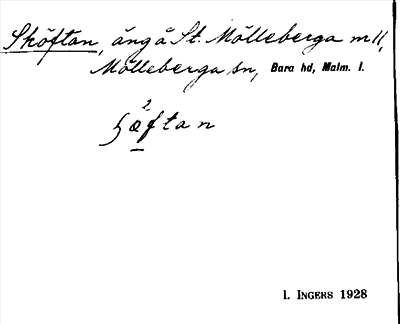 Sköftan, äng å St. Mölleberga m 11,
Mölleberga sn, Bara hd, Malm. l.
2
ɧæftan
I. INGERS 1928